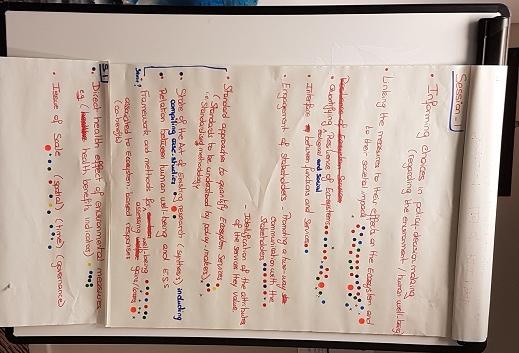 Session
• Informing choices in policy-decision making
(regarding the environment / human well being)
• Linking the measures to their effects on the Ecosystem and
to the societal impact
• Quantifying Resilience of Ecosystems
and Social
• Interface between function and Service
• Engagement of stakeholders - Promoting a two-way
communication with the
stakeholders
- Identification of the attributes
of the services they value
• Standard approaches to quantify Ecosystem Services
(Standards to be understood by policy makers)
• State of the Art of Existing research (synthesis) including
compiling case studies
• Relation between human well-being and ESS
Same?
Framework and methods for well-being
assessing
associated to ecosystem based responses
(co-benefits)
S.1
Direct health effect of environmental measures
eg ( health benefit indicator)
• Issue of Scale (spatial) (time) (governance)